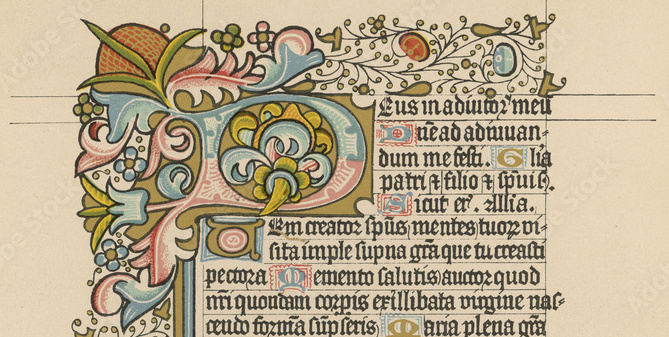 Deus in adiutoꝝ meū
Dñe ad adiuuan-
dum me festi. Glia
patri ⁊ filio ⁊ spūi s.
Sicut er᷒. Allia.
Veni creator spūs, mentes tuoꝝ vi-
sita imple supna grā que tu creasti
pectora Memento salutis auctor quod
nr̄i quondam corpis ex illibata virgine nas-
cendo formā sūpseris Maria plena grā